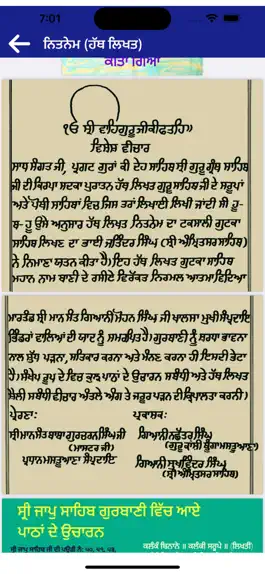 7:01
ਨਿਤਨੇਮ (ਹੱਥ ਲਿਖਤ)
ਕੀਤਾ ਗਿਆ
ੴ ਸ੍ਰੀ ਵਾਹਿਗੁਰੂ ਜੀ ਕੀ ਫਤਹਿ॥
ਵਿਸ਼ੇਸ਼ ਵੀਚਾਰ
ਸਾਧ ਸੰਗਤ ਜੀ, ਪ੍ਰਗਟ ਗੁਰਾਂ ਕੀ ਦੇਹ ਸਾਹਿਬ ਸ੍ਰੀ ਗੁਰੂ ਗ੍ਰੰਥ ਸਾਹਿਬ
ਜੀ ਦੀ ਕਿਰਪਾ ਸਦਕਾ ਪੁਰਾਤਨ ਹੱਥ ਲਿਖਤ ਗੁਰੂ ਸਾਹਿਬ ਜੀ ਦੇ ਸਰੂਪਾਂ
ਅਤੇ ਪੋਥੀ ਸਾਹਿਬਾਂ ਵਿਚ ਜਿਸ ਤਰਾਂ ਲਿਖਾਈ ਲਿਖੀ ਜਾਂਦੀ ਸੀ ਹੂ-
ਬ-ਹੂ ਉਸੇ ਅਨੁਸਾਰ ਹੱਥ ਲਿਖਤ ਨਿਤਨੇਮ ਦਾ ਟਕਸਾਲੀ ਗੁਟਕਾ
ਸਾਹਿਬ ਲਿਖਣ ਦਾ ਭਾਈ ਜਤਿੰਦਰ ਸਿੰਘ (ਸ੍ਰੀ ਅੰਮ੍ਰਿਤਸਰ ਸਾਹਿਬ)
ਨੇ ਨਿਮਾਣਾ ਯਤਨ ਕੀਤਾ ਹੈ। ਇਹ ਹੱਥ ਲਿਖਤ ਗੁਟਕਾ ਸਾਹਿਬ
ਮਹਾਨ ਨਾਮ ਬਾਣੀ ਦੇ ਰਸੀਏ ਵਿਰੱਕਤ ਨਿਰਮਲ ਆਤਮਾ ਵਿਦਿਆ
ਮਾਰਤੰਡ ਸ੍ਰੀ ਮਾਨ ਸੰਤ ਗਿਆਨੀ ਮੋਹਨ ਸਿੰਘ ਜੀ ਖਾਲਸਾ ਮੁਖੀ ਸੰਪ੍ਰਦਾਇ
ਭਿੰਡਰਾਂ ਵਾਲਿਆਂ ਦੀ ਯਾਦ ਨੂੰ ਸਮਰਪਿਤ ਹੈ। ਗੁਰਬਾਣੀ ਨੂੰ ਸ਼ਰਧਾ ਭਾਵਨਾ
ਨਾਲ ਸ਼ੁੱਧ ਪੜਨਾ, ਸਤਿਕਾਰ ਕਰਨਾ ਅਤੇ ਮੰਨਣ ਕਰਨਾ ਹੀ ਇਸਦੀ ਭੇਟਾ
ਹੈ। ਸੰਖੇਪ ਰੂਪ ਦੇ ਵਿਚ ਕੁਝ ਪਾਠਾਂ ਦੇ ਉਚਾਰਨ ਸਬੰਧੀ ਅਤੇ ਹੱਥ ਲਿਖਤ
ਸ਼ੈਲੀ ਸਬੰਧੀ ਵੀਚਾਰ ਅੰਤਲੇ ਅੰਗ ਤੇ ਜਰੂਰ ਪੜਨ ਦੀ ਕ੍ਰਿਪਾਲਤਾ ਕਰਨੀ।
ਪ੍ਰੇਰਣਾ: ਪ੍ਰਕਾਸ਼ਕ:
ਸ੍ਰੀ ਮਾਨ ਸੰਤ ਬਾਬਾ ਗੁਰਚਰਨ ਸਿੰਘ ਜੀ ਗਿਆਨੀ ਨਛੱਤਰ ਸਿੰਘ
(ਮਾਸਟਰ ਜੀ)
ਪ੍ਰਧਾਨ ਮਸਤੂਆਣਾ ਸੰਪ੍ਰਦਾਇ ਗਿਆਨੀ ਸੁਖਵਿੰਦਰ ਸਿੰਘ
(ਸ੍ਰੀ ਅੰਮ੍ਰਿਤਸਰ ਸਾਹਿਬ)
ਸ੍ਰੀ ਜਾਪੁ ਸਾਹਿਬ ਗੁਰਬਾਣੀ ਵਿੱਚ ਆਏ
ਪਾਠਾਂ ਦੇ ਉਚਾਰਨ